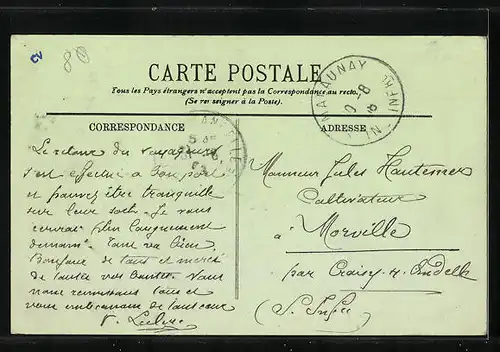 CARTE POSTALE
Tous les Pays étrangers n'acceptent pas la Correspondance au recto.
(Se renseigner à la Poste).
CORRESPONDANCE
ADRESSE
MALAUNAY
Le retour du voyageur
s'est effectué à bon port
et pouvez être tranquille
sur leur sort. Je vous
écrirai plus longuement
demain. Tout va bien.
de tous et merci
de toutes vos bontés. Vous
nous remercions tous et
vous embrassons de tout cœur
Monsieur Jules Hautemer
Cultivateur
à Morville
par Croisy s. Andelle
(S. Infre)